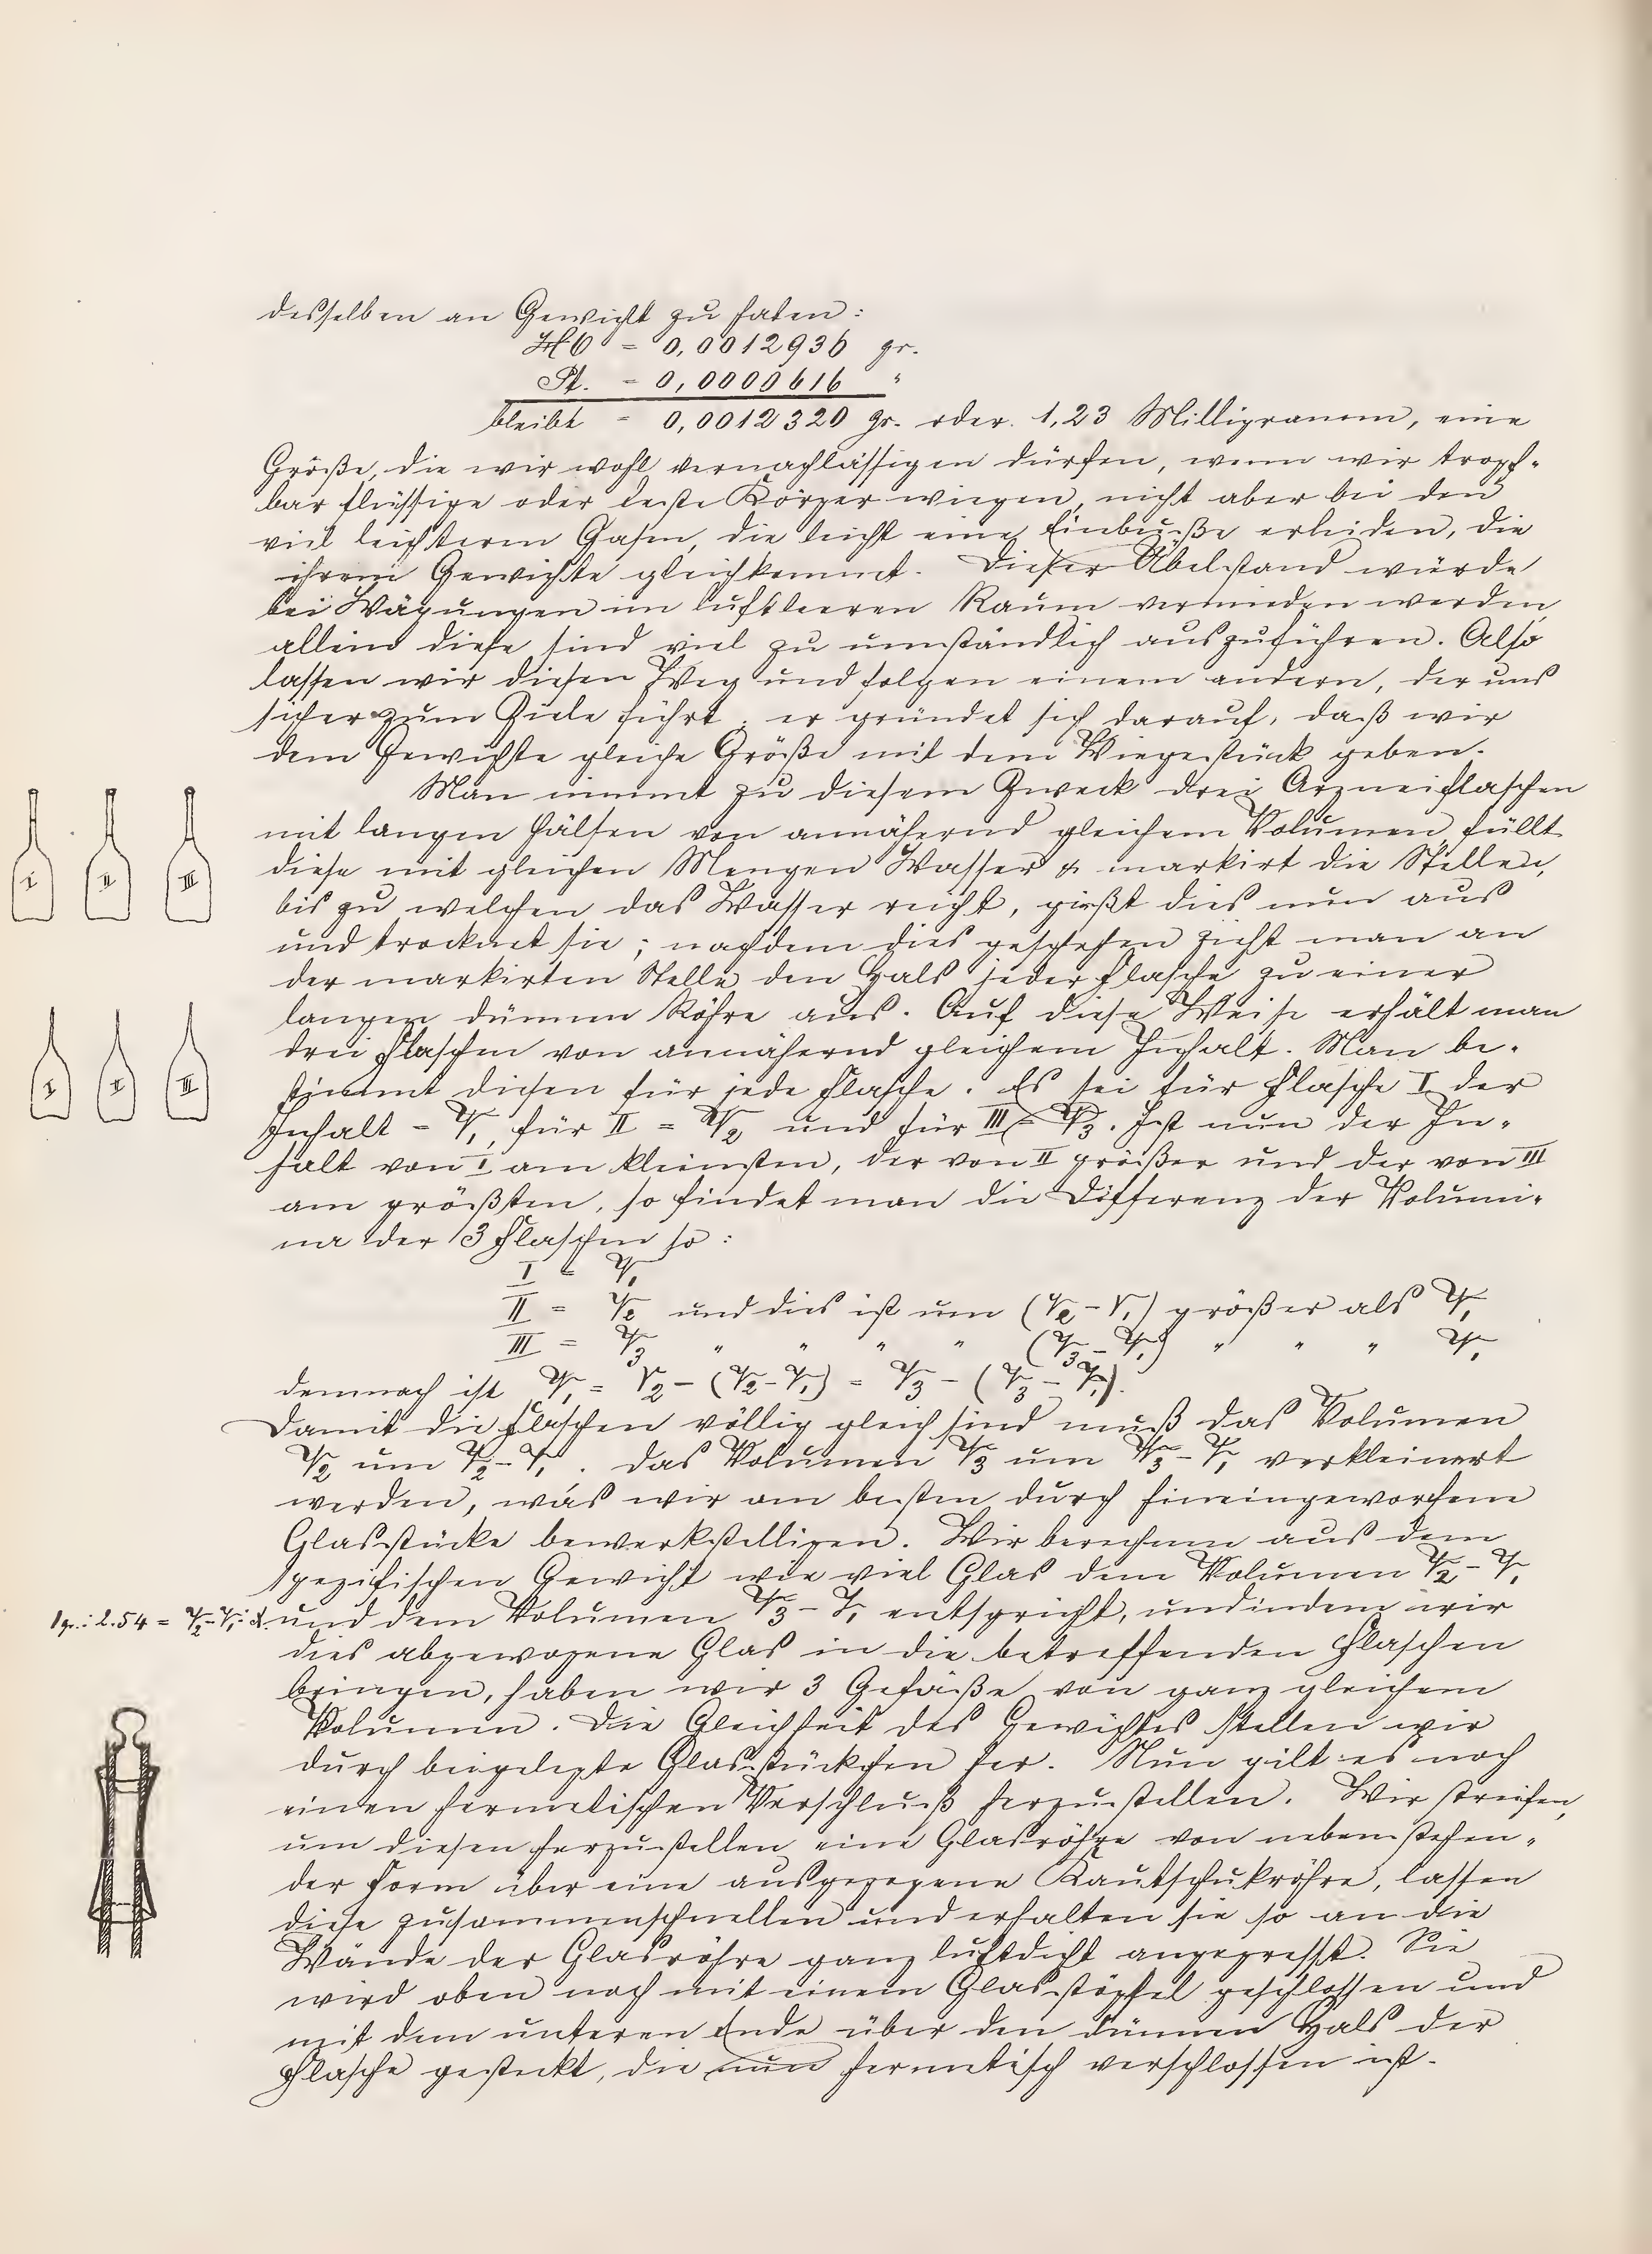 desselben an Gewicht zu haben:
HO = 0,0012936 gr.
Pt. = 0,0000616 "
bleibt = 0,0012320 gr. oder 1,23 Milligramm, eine
Größe, die wir wohl vernachlässigen dürfen, wenn wir tropf-
bar flüssige oder feste Körper wiegen, nicht aber bei den
viel leichteren Gasen, die leicht eine Einbuße erleiden, die
ihrem Gewichte gleichkommt. Dieser Übelstand würde
bei Wägungen im luftleeren Raum vermieden werden,
allein diese sind viel zu umständlich auszuführen. Also
lassen wir diesen Weg und folgen einem andern, der uns
sicher zum Ziele führt; er gründet sich darauf, daß wir
dem Gewichte gleiche Größe mit dem Wiegestück geben.
Man nimmt zu diesem Zweck drei Arzneiflaschen
mit langen Hälsen von annähernd gleichem Volumen, füllt
diese mit gleichen Mengen Wasser & markirt die Stellen,
bis zu welchen das Wasser reicht, gießt dies nun aus
und trocknet sie; nachdem dies geschehen zieht man an
der markirten Stelle den Hals jeder Flasche zu einer
langen dünnen Röhre aus. Auf diese Weise erhält man
drei Flaschen von annähernd gleichem Inhalt. Man be-
stimmt diesen für jede Flasche. Es sei für Flasche I der
Inhalt = V₁, für II = V₂ und für III = V₃. Ist nun der In-
halt von I am kleinsten, der von II größer und der von III
am größten, so findet man die Differenz der Volumi-
na der 3 Flaschen so:
I = V₁
II = V₂ und dies ist um (V₂ - V₁) größer als V₁
III = V₃ " " " " (V₃ - V₁) " " " V₁
demnach ist V₁ = V₂ - (V₂ - V₁) = V₃ - (V₃ - V₁).
Damit die Flaschen völlig gleich sind muß das Volumen
V₂ um V₂ - V₁. das Volumen V₃ um V₃ - V₁ verkleinert
werden, was wir am besten durch hineingeworfene
Glasstücke bewerkstelligen. Wir berechnen aus dem
spezifischen Gewicht wie viel Glas dem Volumen V₂ - V₁
1 gr.: 2.54 = V₂ - V₁ : x. und dem Volumen V₃ - V₁ entspricht, und indem wir
dies abgewogene Glas in die betreffenden Flaschen
bringen, haben wir 3 Gefäße von ganz gleichem
Volumen. Die Gleichheit des Gewichtes stellen wir
durch beigelegte Glasstückchen her. Nun gilt es noch
einen hermetischen Verschluß herzustellen. Wir streifen,
um diesen herzustellen eine Glasröhre von nebenstehen-
der Form über eine ausgezogene Kautschukröhre, lassen
diese zusammenschnellen und erhalten sie so an die
Wände der Glasröhre ganz luftdicht angepresst. Sie
wird oben noch mit einem Glasstöpsel geschlossen und
mit dem unteren Ende über den dünnen Hals der
Flasche gesteckt, die nun hermetisch verschlossen ist.
I
II
III
I
II
III